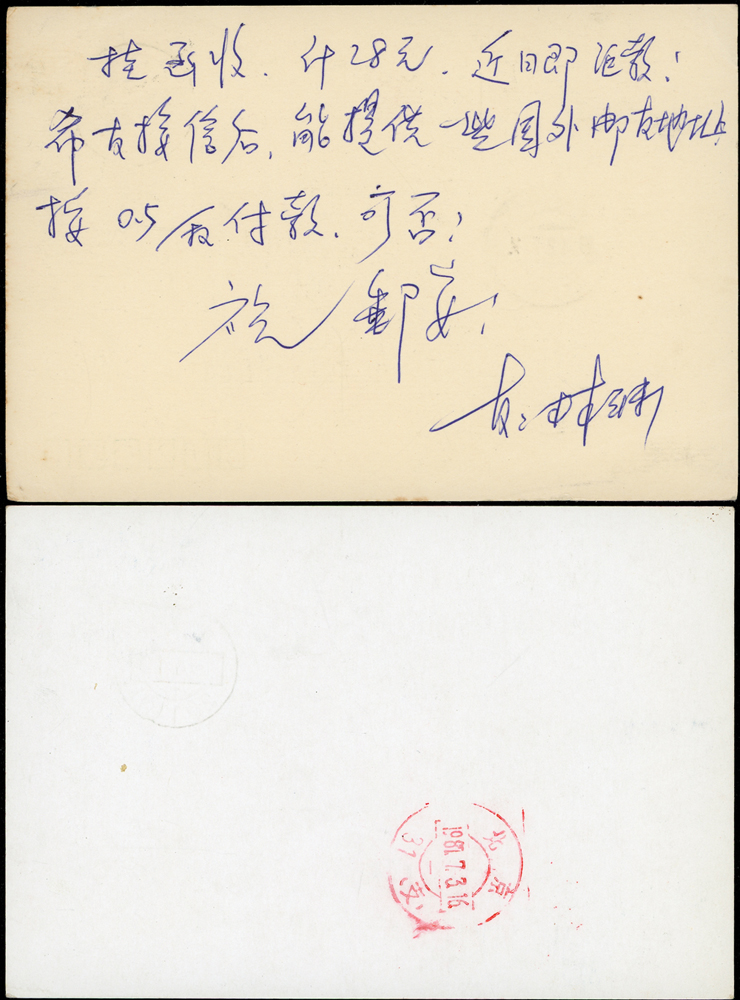 挂函收. 计28元. 近日即汇款!
希友接信后, 能提供一些国外邮友地址
接 0.5 元付款. 可否!
祝 邮安!
友:
北京
1981.7.3.16
31 支